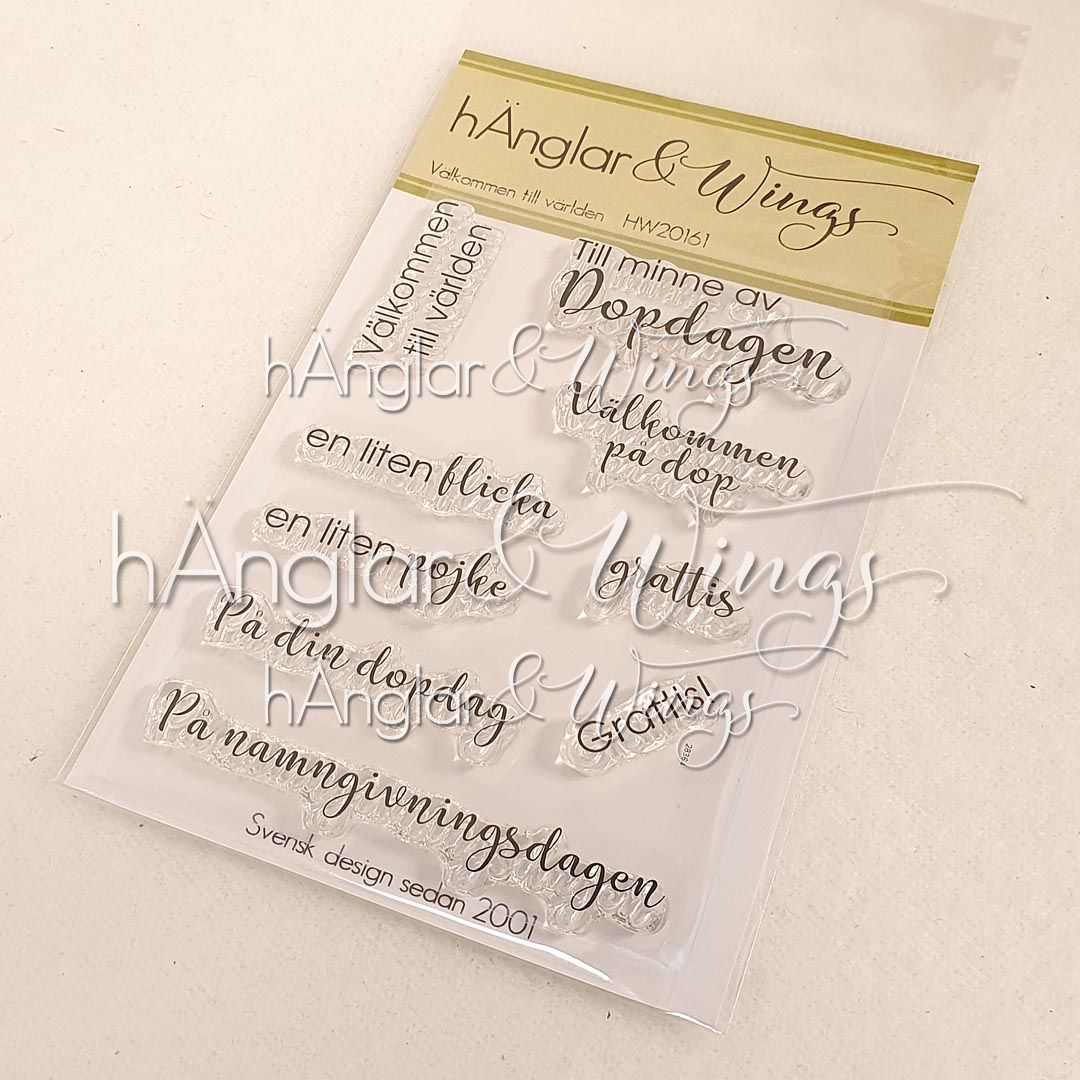 hÄnglar & Wings
Välkommen till världen HW20161
Välkommen
till världen
Till minne av
Dopdagen
hÄnglar & Wings
Välkommen
på dop
en liten flicka
en liten pojke
hÄnglar & Wings
grattis
På din dopdag
hÄnglar & Wings
Grattis!
På namngivningsdagen
Svensk design sedan 2001